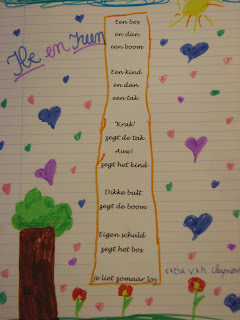 en
Een bos
en dan
een boom
Een kind
en dan
een tak
'Krak'
zegt de tak
Auw!
zegt het kind
Dikke bult
zegt de boom
Eigen schuld
zegt het bos
je liet zomaar los
van